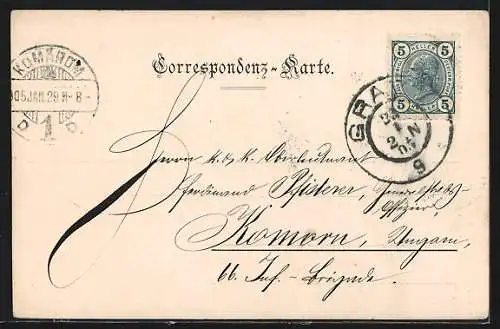 KOMÁROM
905 JAN. 29. N-8-
D 1 D
Correspondenz-Karte.
5 HELLER 5
5 5
GRAZ
9
Herrn k. & k. Oberleutnant
Ferdinand Pfisterer,
Offizier,
Komorn, Ungarn,
66. Inf.-Brigade.